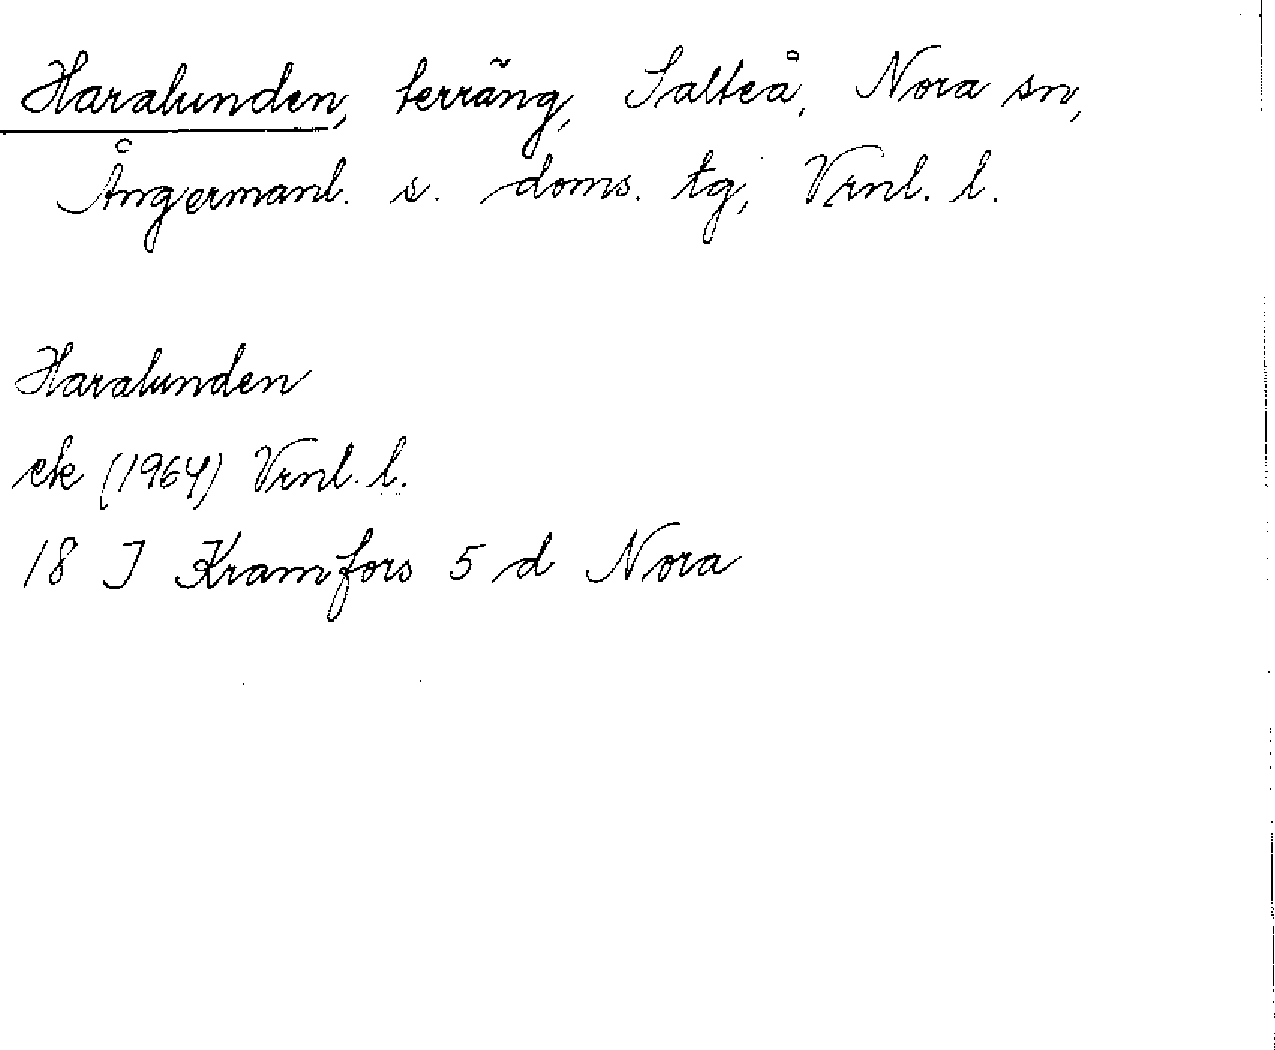 Haralunden, terräng, Salteå, Nora sn,
Ångermanl. s. doms. tg, Vrnl. l.
Haralunden
ek (1964) Vrnl. l.
18 J Kramfors 5 d Nora